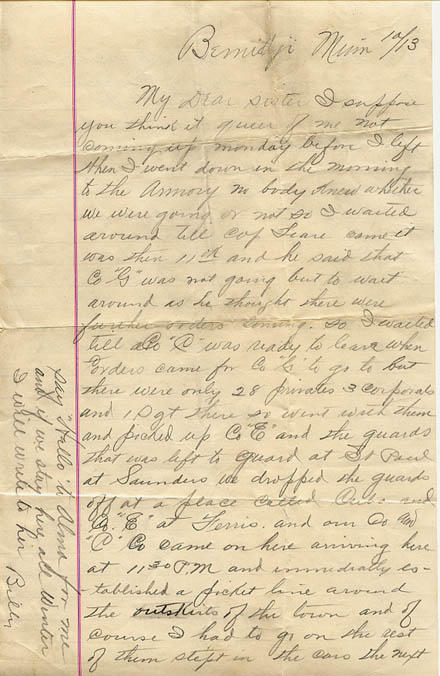 Bemidji Minn 10/13
My Dear sister I suppose
you think it queer of me not
coming up monday before I left
when I went down in the morning
to the Armory no body knew whether
we were going or not so I waited
around till Cap came it
was then 11 and he said that
Co "G" was not going but to wait
around as he thought there were
further orders coming. so I waited
till Co "C" was ready to leave when
orders came for Co "G" to go to but
there were only 28 privates 3 corporals
and 1 Sgt there so went with them
and picked up Co "E" and the guards
that was left to guard at St Paul
at Saunders we dropped the guards
off at a place called and
Co. "E" at Ferris. and our Co and
"C" Co came on here arriving here
at 11 30 P.M and immediatly es-
tablished a picket line around
the outskirts of the town and of
course I had to go on the rest
of them slept in the cars the next
say "Hallo" to Alma for me
and if we stay here all Winter
I will write to her Billy